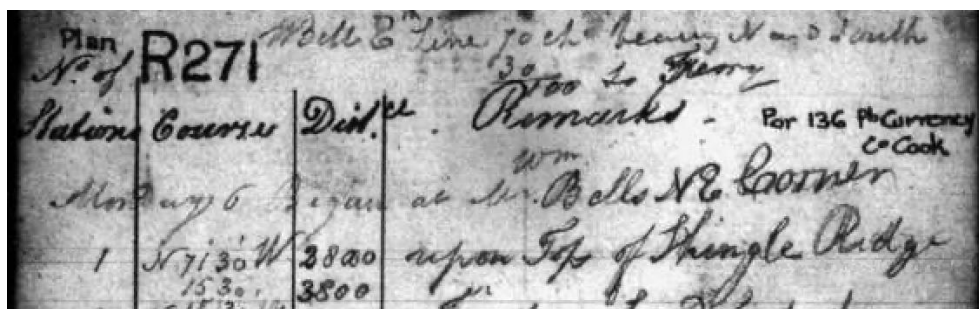 Plan R271 Bell E Line 70 ch heavy N and South
No. of 30 00 to Ferry
Stations Course Dist.ce Remarks - Por 136 Ph Currency
Co Cook
Wm
Monday 6 Began at Mr. Bells NE Corner
1 N 71 30' W 2800 upon Top of Shingle Ridge
15 30 3800